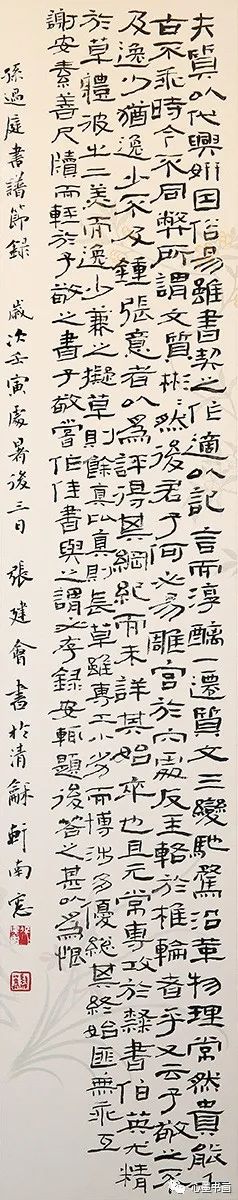 夫質以代興妍因俗易雖書契之作適以記言而淳醨一遷質文三變馳騖沿革物理常然貴能
古不乖時今不同弊所謂文質彬〻然後君子何必易雕宮於穴處反玉輅於椎輪者乎又云子敬之不
及逸少猶逸少不及鍾張意者以爲評得其綱紀而未詳其始卒也且元常專攻於隸書伯英尤精
於草體彼之二美而逸少兼之擬草則餘真比真則長草雖專工小劣而博涉多優總其終始匪無乖互
謝安素善尺牘而輕於子敬之書子敬嘗作佳書與之謂必存錄安輒題後答之甚以爲恨
孫過庭書譜節録 歲次壬寅處暑後三日 張建會書於清龢軒南窻